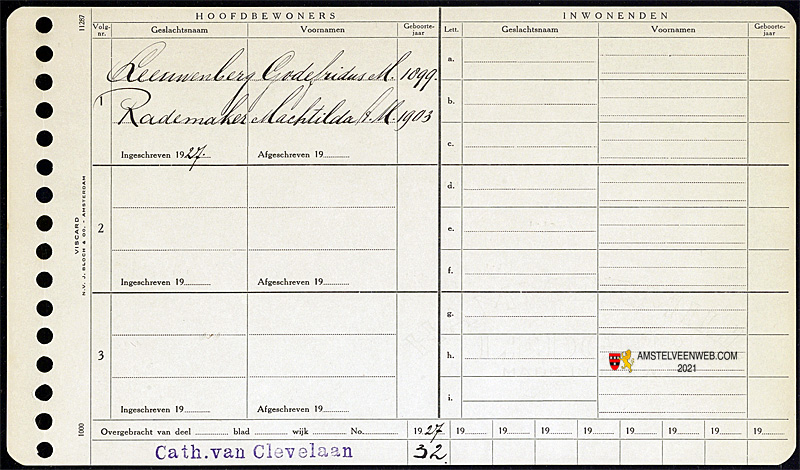 HOOFDBEWONERS
INWONENDEN
11287
Volg-nr. Geslachtsnaam Voornamen Geboorte-jaar
Lett. Geslachtsnaam Voornamen Geboorte-jaar
1
Leeuwenberg Godefridus M. 1899.
Rademaker Machtilda A. M. 1903
Ingeschreven 1927. Afgeschreven 19
a.
b.
c.
2
Ingeschreven 19 Afgeschreven 19
d.
e.
f.
3
Ingeschreven 19 Afgeschreven 19
g.
h.
i.
VISCARD
N.V. J. BLOCH & CO. - AMSTERDAM
1000
AMSTELVEENWEB.COM
2021
Overgebracht van deel blad wijk No. 1927. 19 19 19 19 19 19 19 19
Cath. van Clevelaan 32